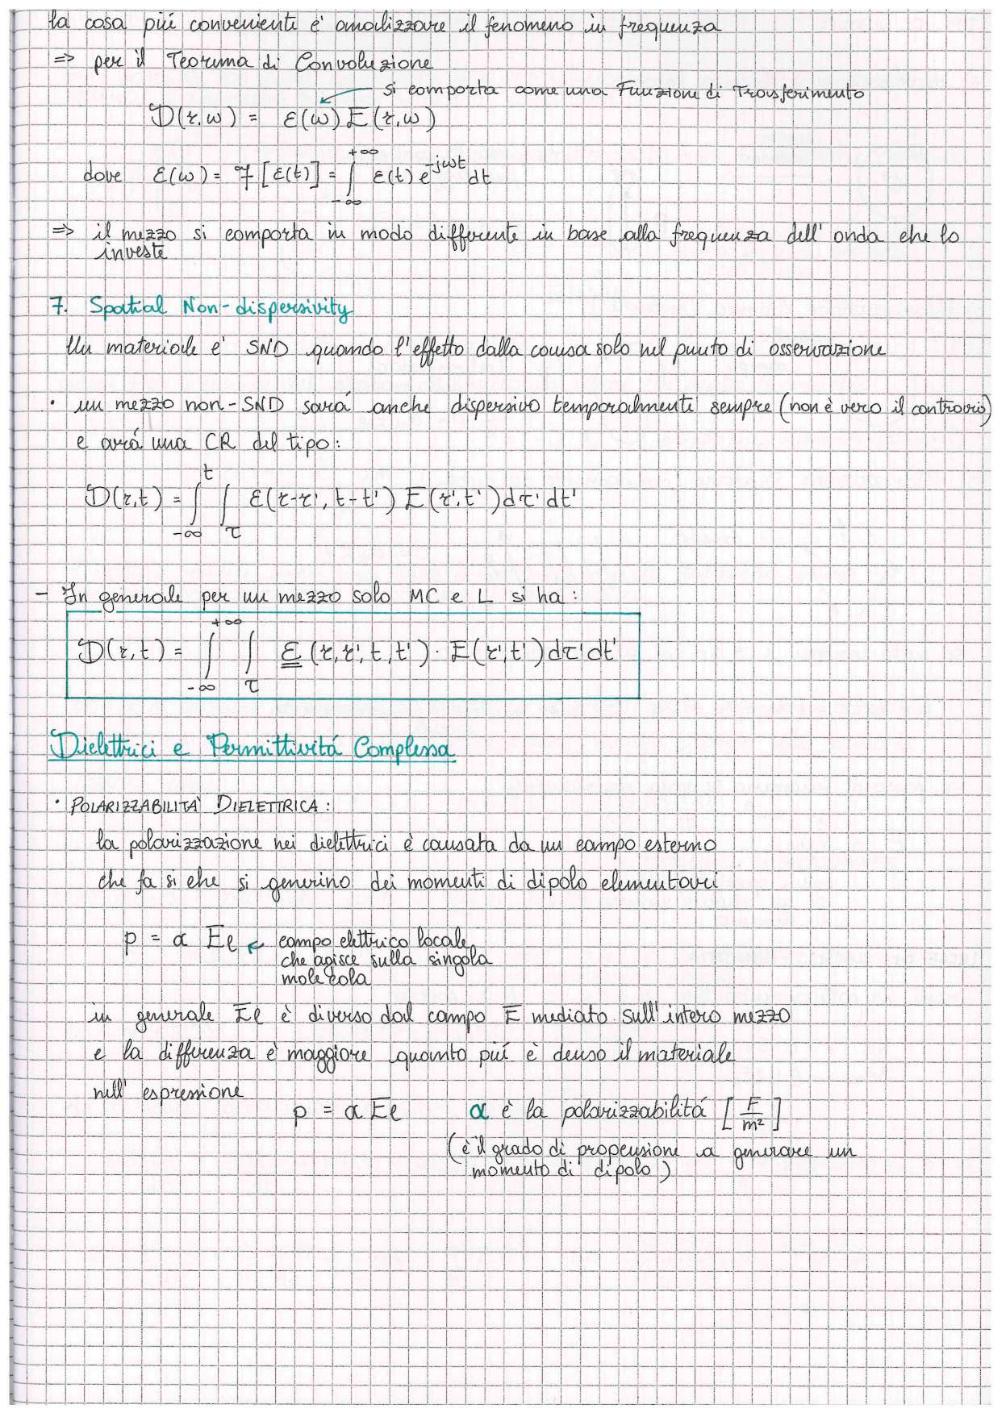 la cosa piú conveniente é analizzare il fenomeno in frequenza
=> per il Teorema di Convoluzione
si comporta come una Funzione di Trasferimento
D(r,ω) = ε(ω) E(r,ω)
dove ε(ω) = F[ε(t)] = ∫_{-∞}^{+∞} ε(t) e^{-jωt} dt
=> il mezzo si comporta in modo differente in base alla frequenza dell'onda che lo
investe
7. Spatial Non-dispersivity
Un materiale é SND quando l'effetto dalla causa solo nel punto di osservazione
• un mezzo non-SND sará anche dispersivo temporalmente sempre (non è vero il contrario)
e avrá una CR del tipo:
D(r,t) = ∫_{-∞}^{t} ∫_{τ} ε(r-r', t-t') E(r',t') dτ' dt'
- In generale per un mezzo solo MC e L si ha:
D(r,t) = ∫_{-∞}^{+∞} ∫_{τ} ε(r,r',t,t') · E(r',t') dτ' dt'
Dielettrici e Permittivitá Complessa
• POLARIZZABILITA' DIELETTRICA:
la polarizzazione nei dielettrici è causata da un campo esterno
che fa si che si generino dei momenti di dipolo elementari
p = α El ← campo elettrico locale
che agisce sulla singola
molecola
in generale El è diverso dal campo E mediato sull'intero mezzo
e la differenza è maggiore quanto piú è denso il materiale
nell'espressione
p = α El α è la polarizzabilitá [F/m²]
(è il grado di propensione a generare un
momento di dipolo)